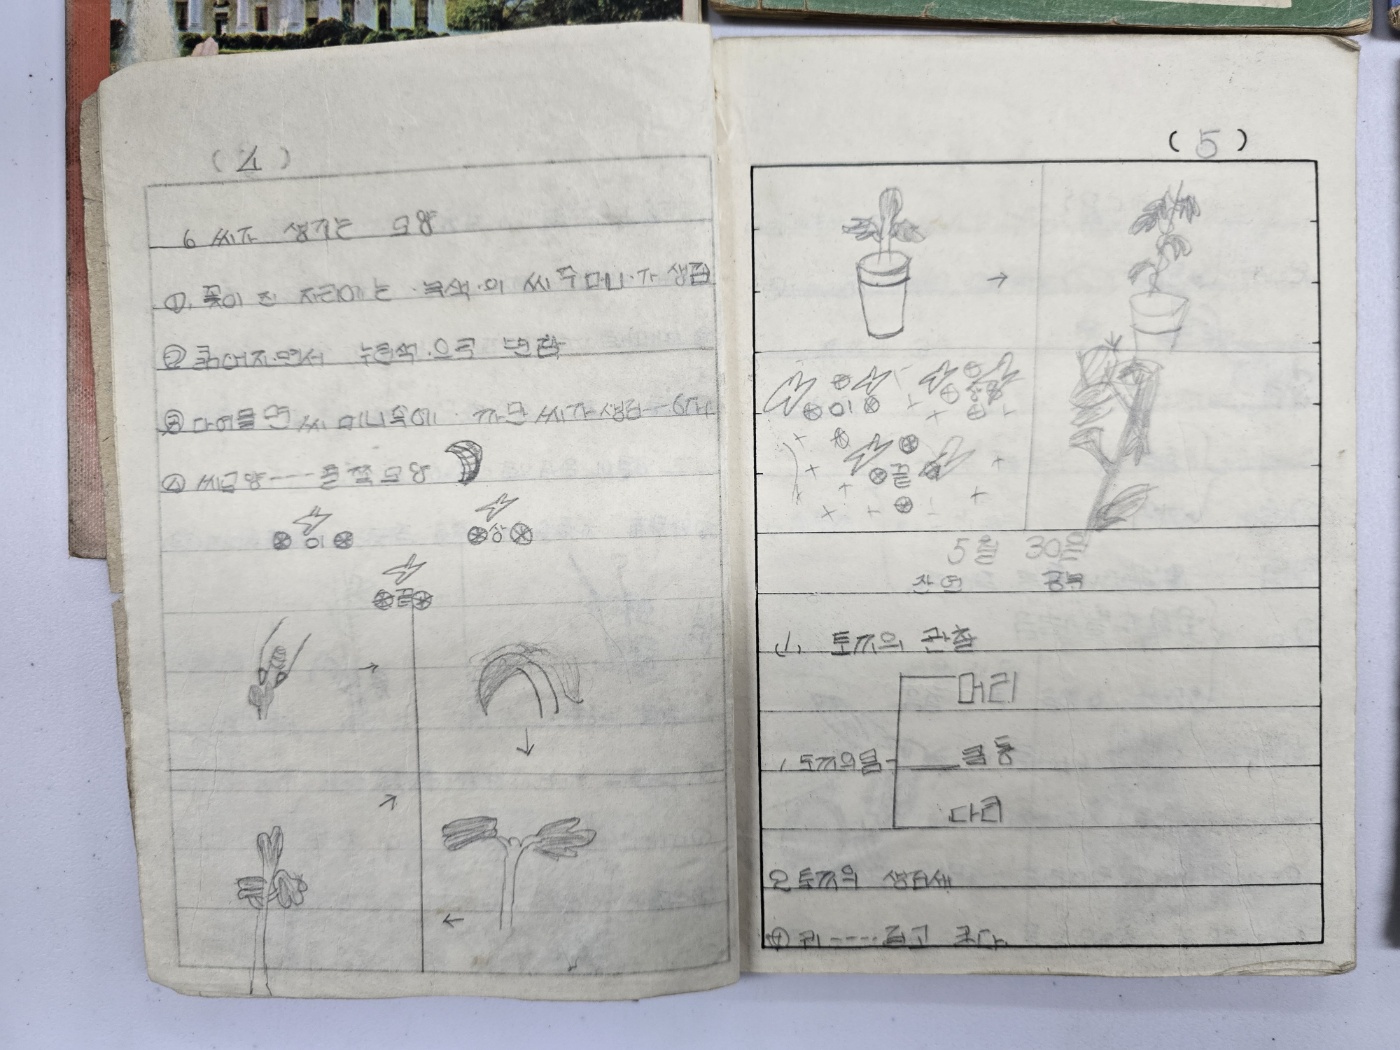 (4)
6 씨가 생기는 모양
① 꽃이 진 자리에는 녹색의 씨 주머니가 생김
② 커지면서 누런색으로 변함
③ 씨 머니속에 까만 씨가 생김
④ 씨모양----골짝모양
이 상
끝
(5)
이 상
끝
5월 30일
자연 공부
(1) 토끼의 관찰
머리
1, 토끼의몸 몸통
다리
2 토끼의 생김새
① 귀----길고 크다